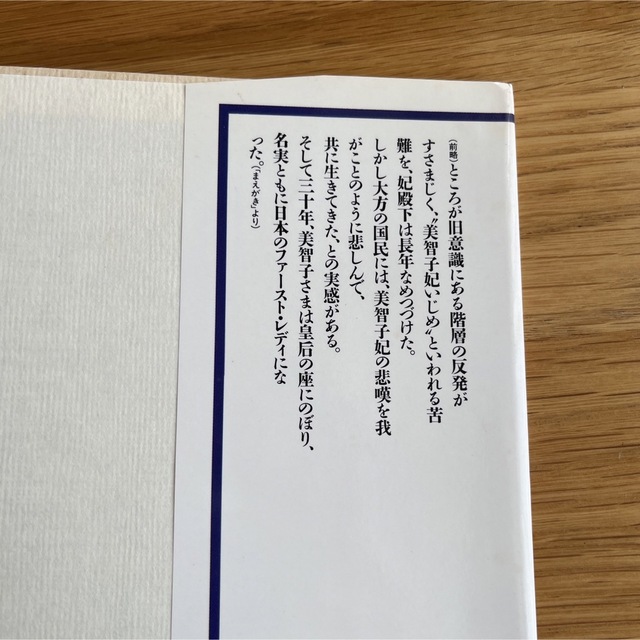 （前略）ところが旧意識にある階層の反発が
すさまじく、〝美智子妃いじめ〟といわれる苦
難を、妃殿下は長年なめつづけた。
しかし大方の国民には、美智子妃の悲嘆を我
がことのように悲しんで、
共に生きてきた、との実感がある。
そして三十年、美智子さまは皇后の座にのぼり、
名実ともに日本のファースト・レディにな
った。（「まえがき」より）